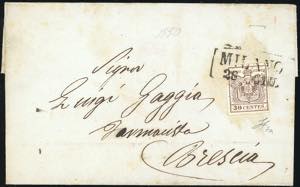 1850
MILANO
26
30 CENTES
Signor
Luigi Gaggia
Farmacista
Brescia